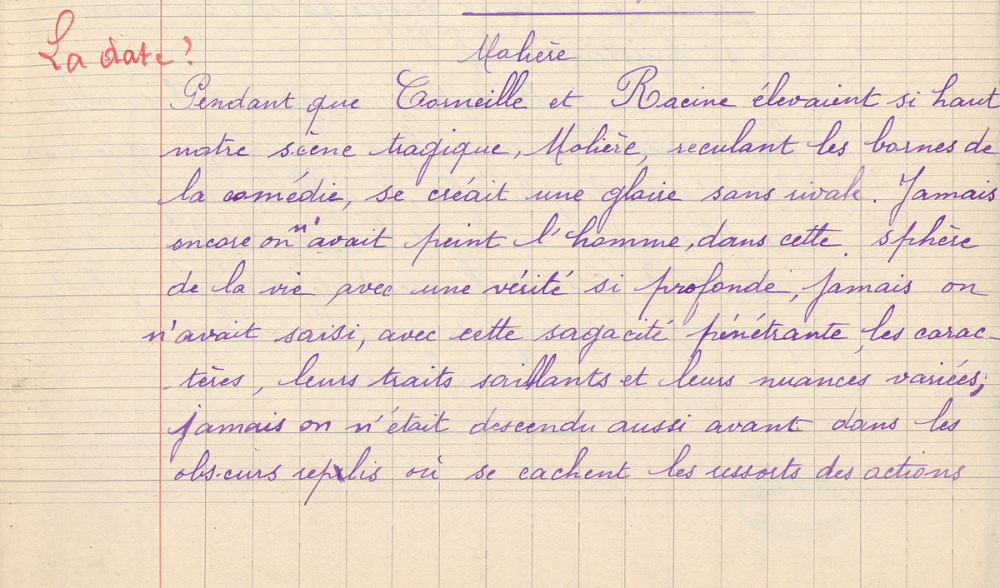 La date?
Molière
Pendant que Corneille et Racine élevaient si haut
notre scène tragique, Molière, reculant les bornes de
la comédie, se créait une gloire sans rivale. Jamais
encore on n'avait peint l'homme, dans cette sphère
de la vie avec une vérité si profonde, jamais on
n'avait saisi, avec cette sagacité pénétrante, les carac-
-tères, leurs traits saillants et leurs nuances variées;
jamais on n'était descendu aussi avant dans les
obscurs replis où se cachent les ressorts des actions